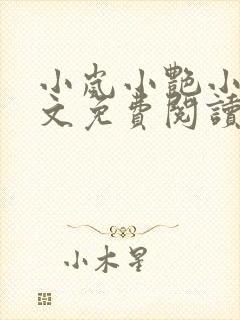 小岚小艷小
文免費閱讀
小木星